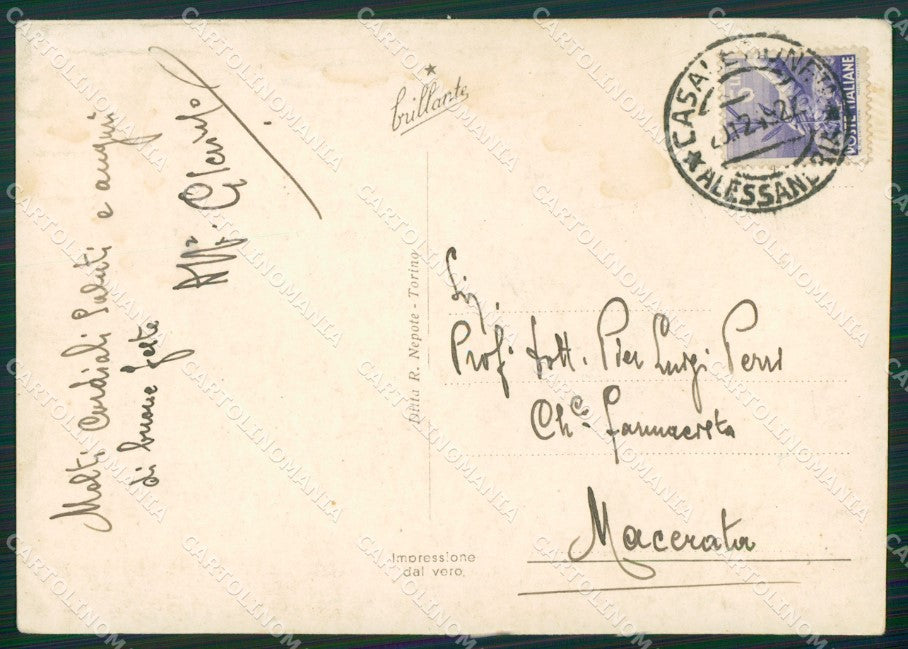 Molti Cordiali Saluti e auguri
di buone feste
brillante
Ditta R. Nepote - Torino
Impressione
dal vero.
CASALE MONF
ALESSAND
POSTE ITALIANE
Sig.
Prof. Dott. Pier Luigi Persi
Ch.co Farmacista
Macerata
CARTOLINOMANIA